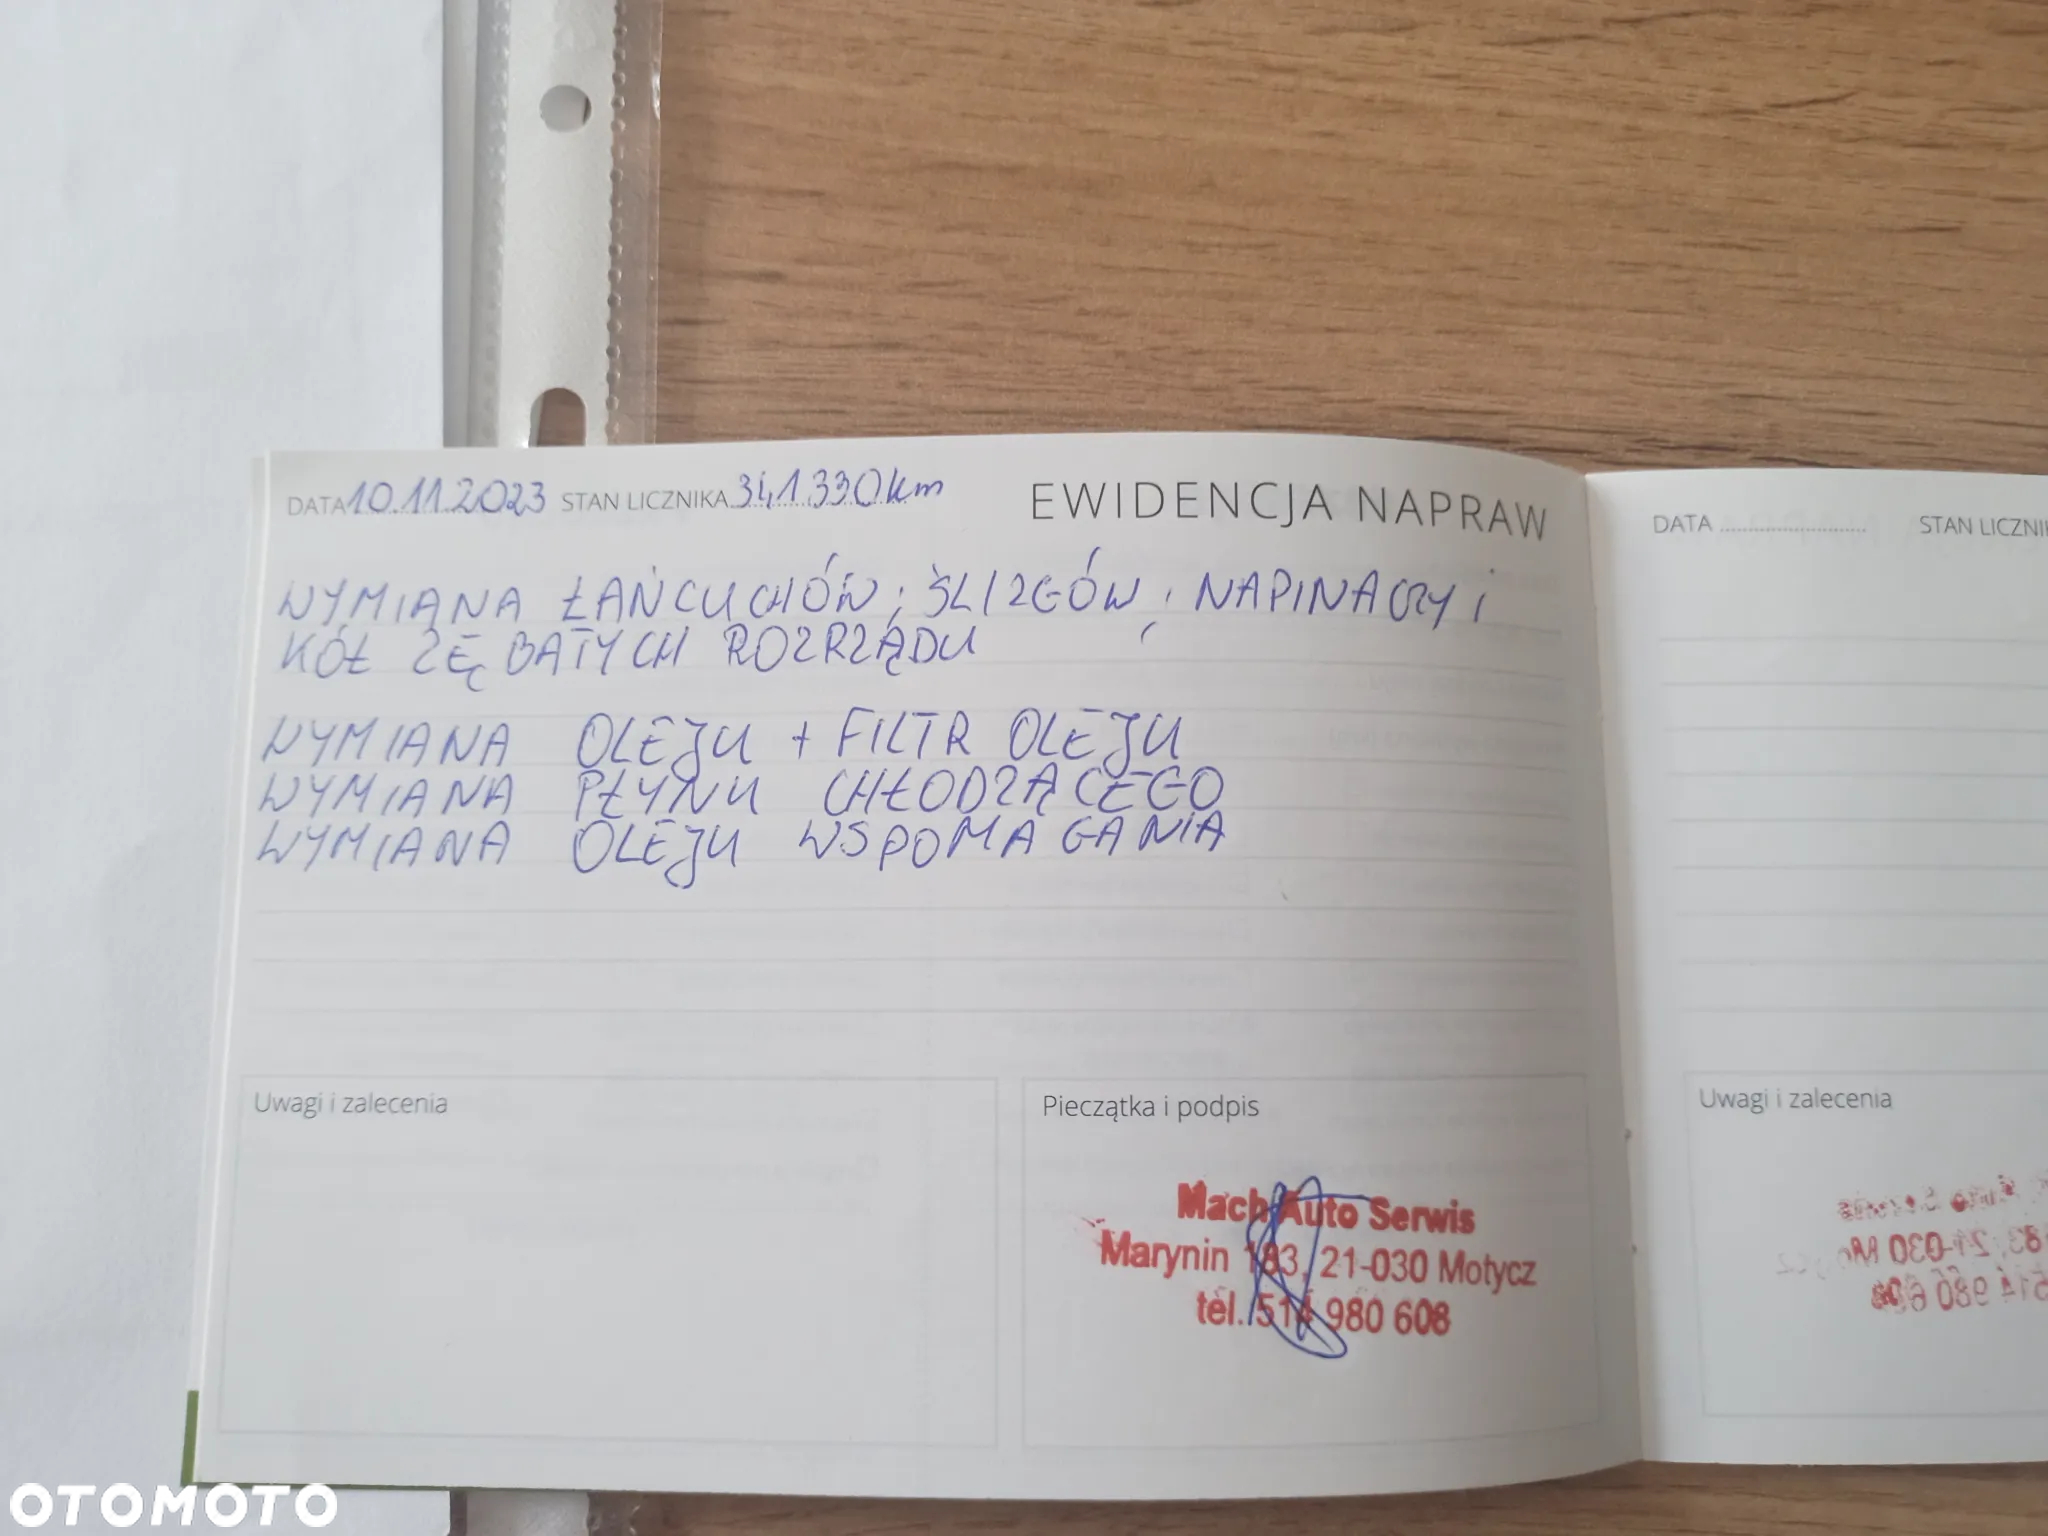 DATA 10.11.2023 STAN LICZNIKA 341330km EWIDENCJA NAPRAW
WYMIANA ŁAŃCUCHÓW, ŚLIZGÓW, NAPINACZY i
KÓŁ ZĘBATYCH ROZRZĄDU
WYMIANA OLEJU + FILTR OLEJU
WYMIANA PŁYNU CHŁODZĄCEGO
WYMIANA OLEJU WSPOMAGANIA
Uwagi i zalecenia
Pieczątka i podpis
Mach Auto Serwis
Marynin 183, 21-030 Motycz
tel. 514 980 608
DATA STAN LICZNI
Uwagi i zalecenia
OTOMOTO